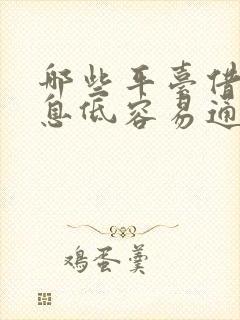 那些平臺借
息低容易通
鸡蛋羹